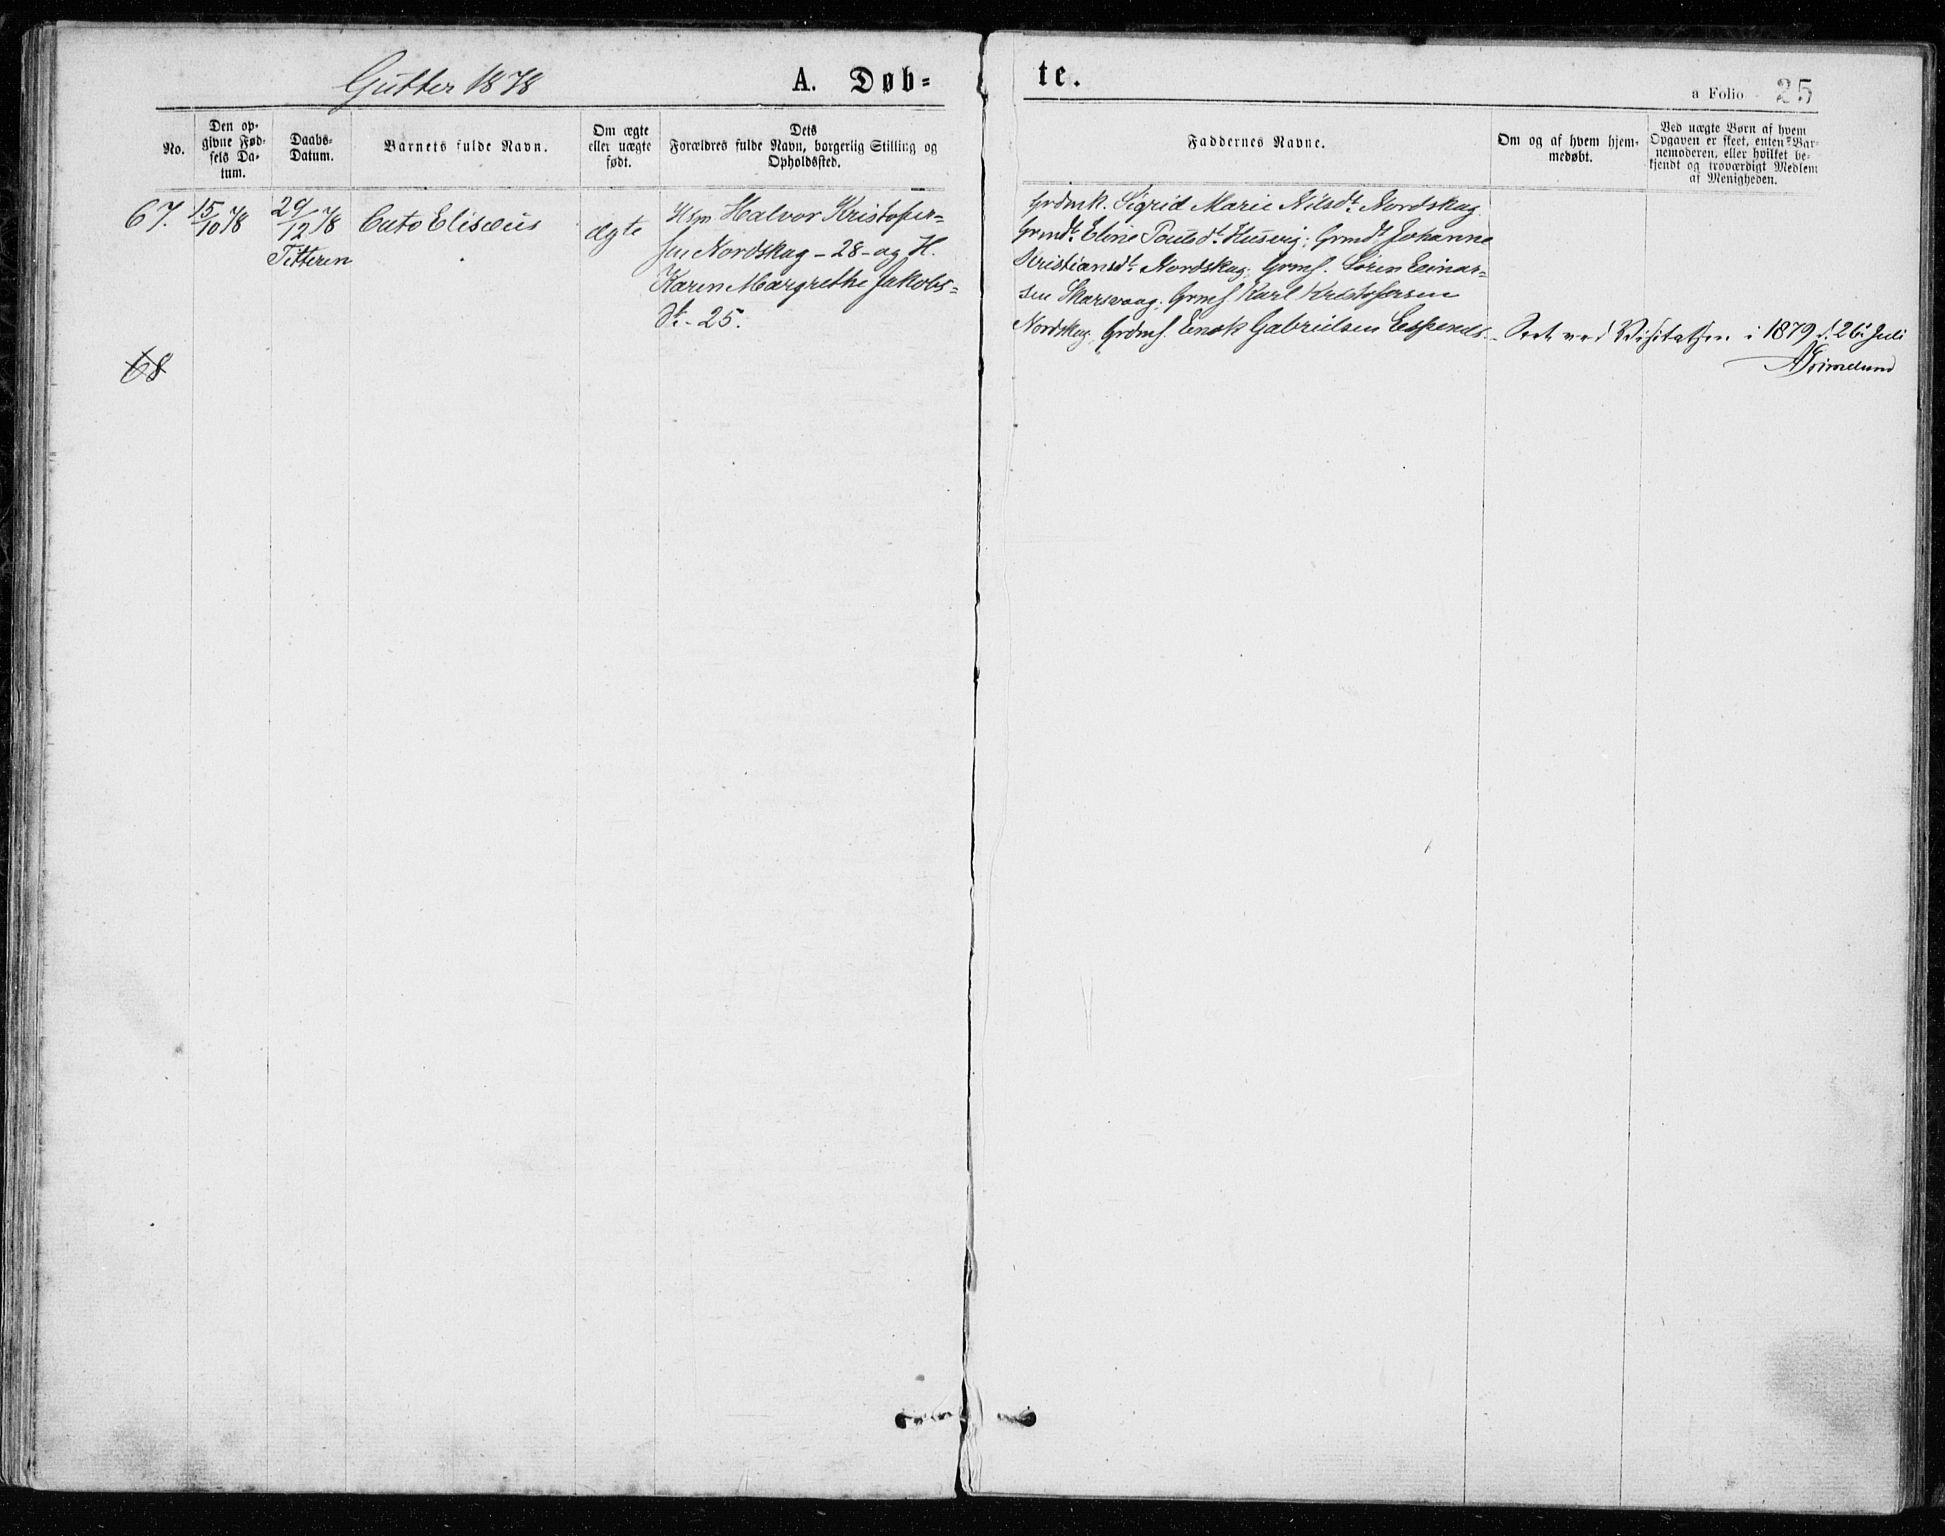 Gutter 1878
A. Døb=
te.
a Folio 25
No.
Den op-
givne Fød-
sels Da-
tum.
Daabs-
Datum.
Barnets fulde Navn.
Om ægte
eller uægte
født.
Dets
Forældres fulde Navn, borgerlig Stilling og
Opholdssted.
Faddernes Navne.
Om og af hvem hjem-
medøbt.
Ved uægte Børn af hvem
Opgaven er skeet, enten Bar-
nemoderen, eller hvilket be-
kjendt og troværdigt Medlem
af Menigheden.
67.
15/10 78
29/12 78
Titteren
Cato Elisæus
ægte
Halvor Kristofer=
sen Nordskag - 28 - og H.
Karen Margrethe Jakobs=
dt. - 25.
Grdmk. Sigrid Marie Nilsdt. Nordskag
Grmdt. Eline Poulsdt. Husvig; Grmdt Johanne
Kristiansdt. Nordskag; Grms. Sören Einar=
sen Skarsvaag; Grms Karl Kristofersen
Nordskag, Grdms. Enok Gabrielsen Espenes.
Seet ved Visitatsen i 1879 d. 26. Juli
AGrimelund
68